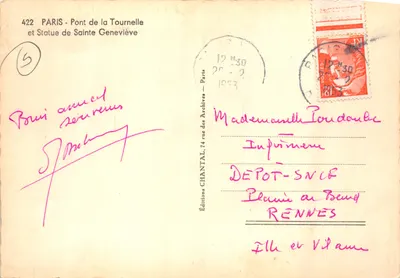 422 PARIS - Pont de la Tournelle
et Statue de Sainte Geneviève
5
PARIS
12H30
1953
Bons amical
souvenirs
Editions CHANTAL, 74 rue des Archives - Paris
Mademoiselle Poudoulec
Infirmière
DEPOT-SNCF
Plaine de Baud
RENNES
Ille et Vilaine